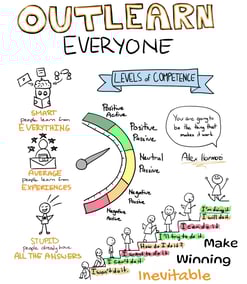 OUTLEARN
EVERYONE
LEVELS of COMPETENCE
SMART
people learn from
EVERYTHING
AVERAGE
people learn from
EXPERIENCES
STUPID
people already have
ALL THE ANSWERS
Positive
Active
Positive
Passive
Neutral
Passive
Negative
Passive
Negative
Active
You are going
to be the thing that
makes it work
Alex Hormozi
I'm doing it
I will do it
I can do it
I'll try to do it
How do I do it
I want to do it
I can't do it
I won't do it
Make
Winning
Inevitable